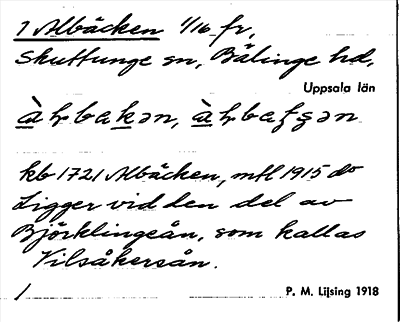 1 Albäcken 1/16 fr,
Skuttunge sn, Bälinge hd,
Uppsala län
kb 1721 Albäcken, mtl 1915 do
Ligger vid den del av
Björklingeån, som kallas
Vilsåkersån.
P. M. Lijsing 1918